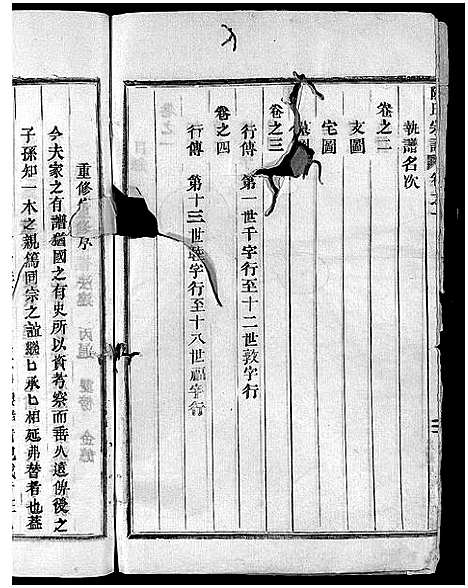 氏宗譜
執譜名次
卷之二
支圖
宅圖
墓圖
卷之三
行傳 第一世千字行至十二世敦字行
卷之四
行傳 第十三世睦字行至十八世福字行
重修
序
今夫家之有譜猶國之有史所以資考察而垂久遠俾後之
子孫知一木之親篤同宗之誼繼匕承匕相延弗替者也蓋